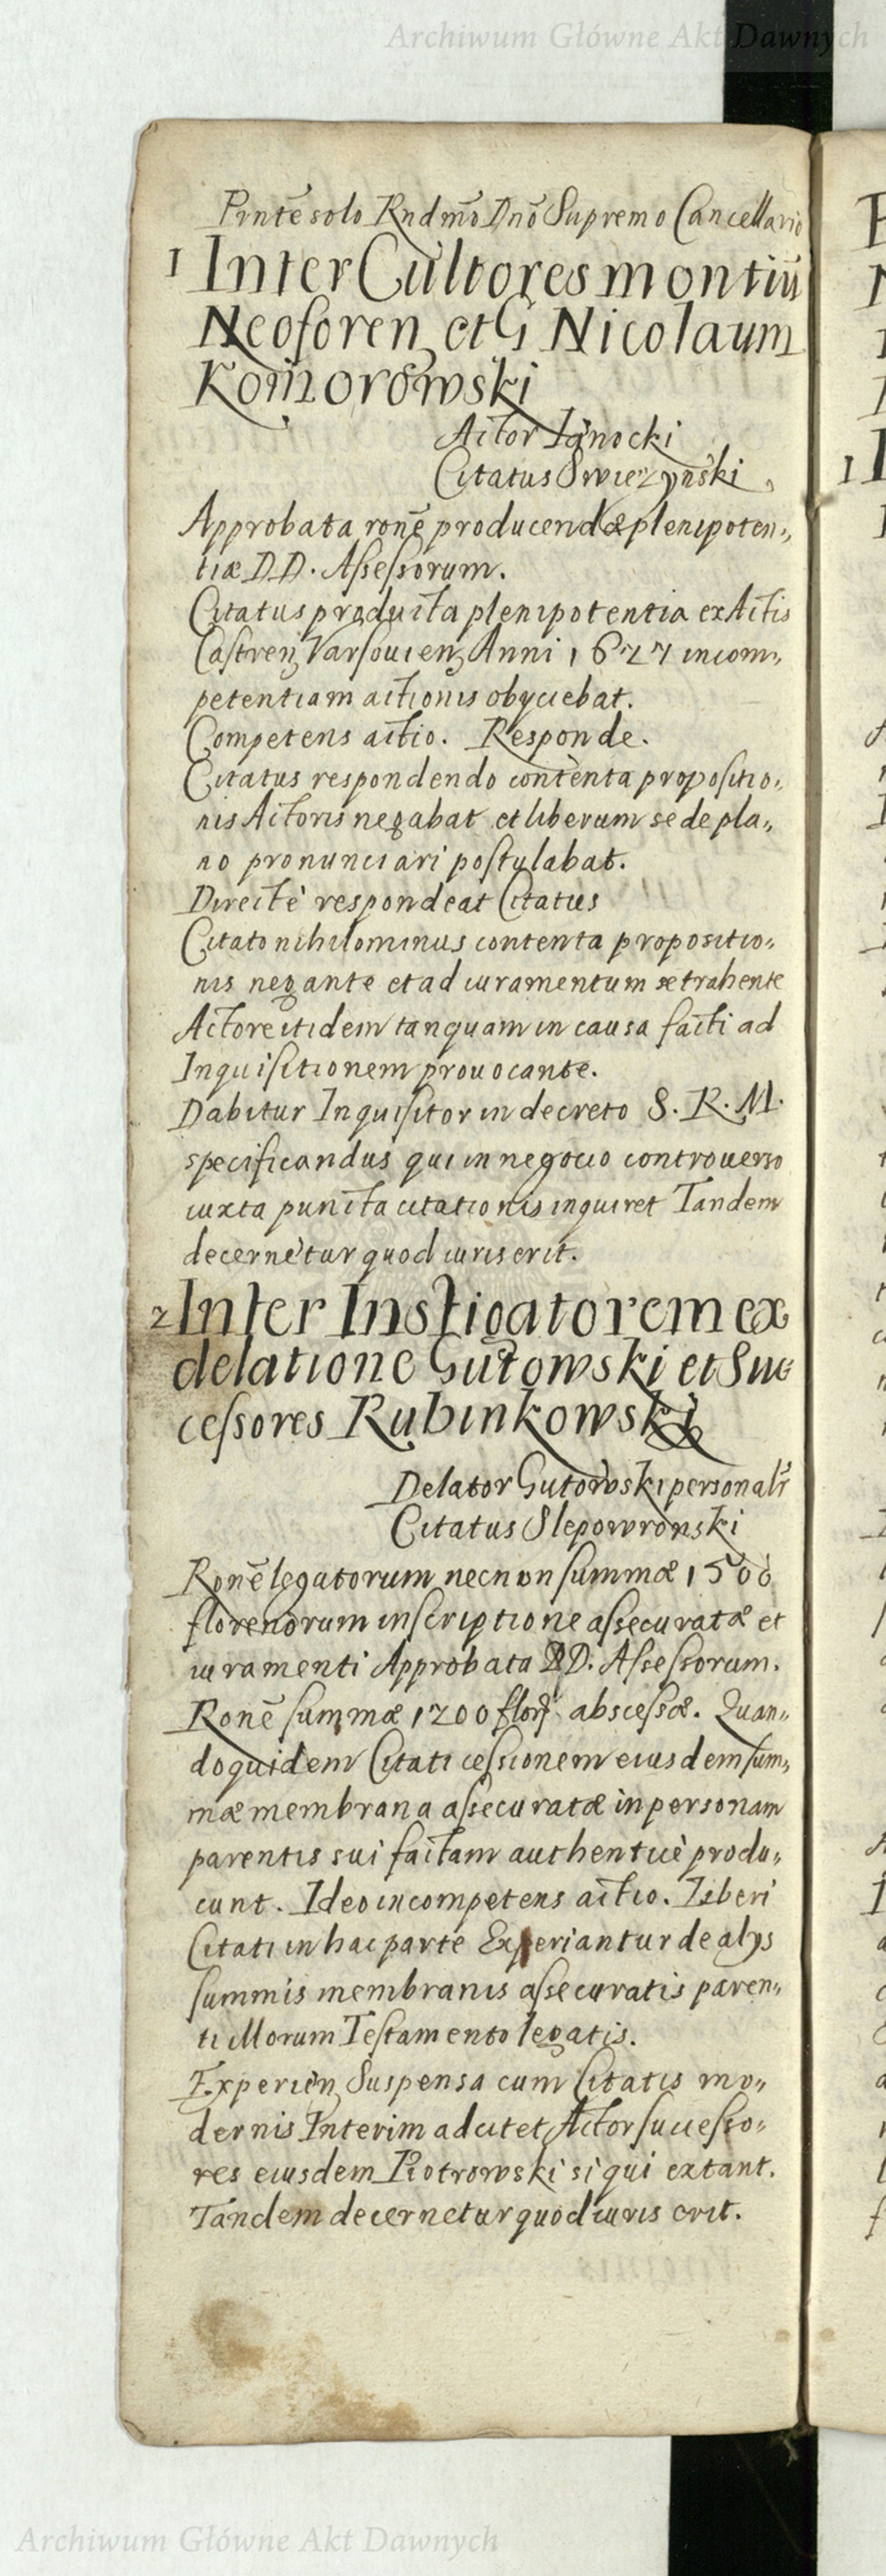 Archiwum Główne Akt Dawnych
Pnte solo Rndmo Dno Supremo Cancellario
1 Inter Cultores montiu
Neoforen et G Nicolaum
Komorowski
Actor Janocki
Citatus Swiezynski
Approbata rone producendæ plenipoten„
tiæ DD. Assessorum.
Citatus producta plenipotentia ex Actis
Castren Varsouien Anni 1627 incom„
petentiam actionis obyciebat.
Competens actio. Responde.
Citatus respondendo contenta propositio„
nis Actoris negabat et liberum se de pla„
no pronunciari postulabat.
Directè respondeat Citatus
Citato nihilominus contenta propositio„
nis negante et ad iuramentum se trahente
Actore itidem tanquam in causa facti ad
Inquisitionem prouocante.
Dabitur Inquisitor in decreto S. R. M.
specificandus qui in negocio controuerso
iuxta puncta citationis inquiret Tandem
decernetur quod iuris erit.
2 Inter Instigatorem ex
delatione Gutowski et Suc
cessores Rubinkowski
Delator Gutowski personalr
Citatus Slepowronski
Ronē legatorum necnon summæ 1500
florenorum inscriptione assecuratæ et
iuramenti Approbata DD. Assessorum.
Ronē summæ 1200 flor abscessæ. Quan„
doquidem Citati cessionem eiusdem sum„
mæ membrana assecuratæ in personam
parentis sui factam authenticè produ„
cunt. Ideo incompetens actio. Liberi
Citati in hac parte Experiantur de alys
summis membranis assecuratis paren„
ti illorum Testamento legatis.
Experien Suspensa cum Citatis mo„
dernis Interim adcitet Actor successo„
res eiusdem Piotrowski si qui extant.
Tandem decernetur quod iuris erit.
Archiwum Główne Akt Dawnych